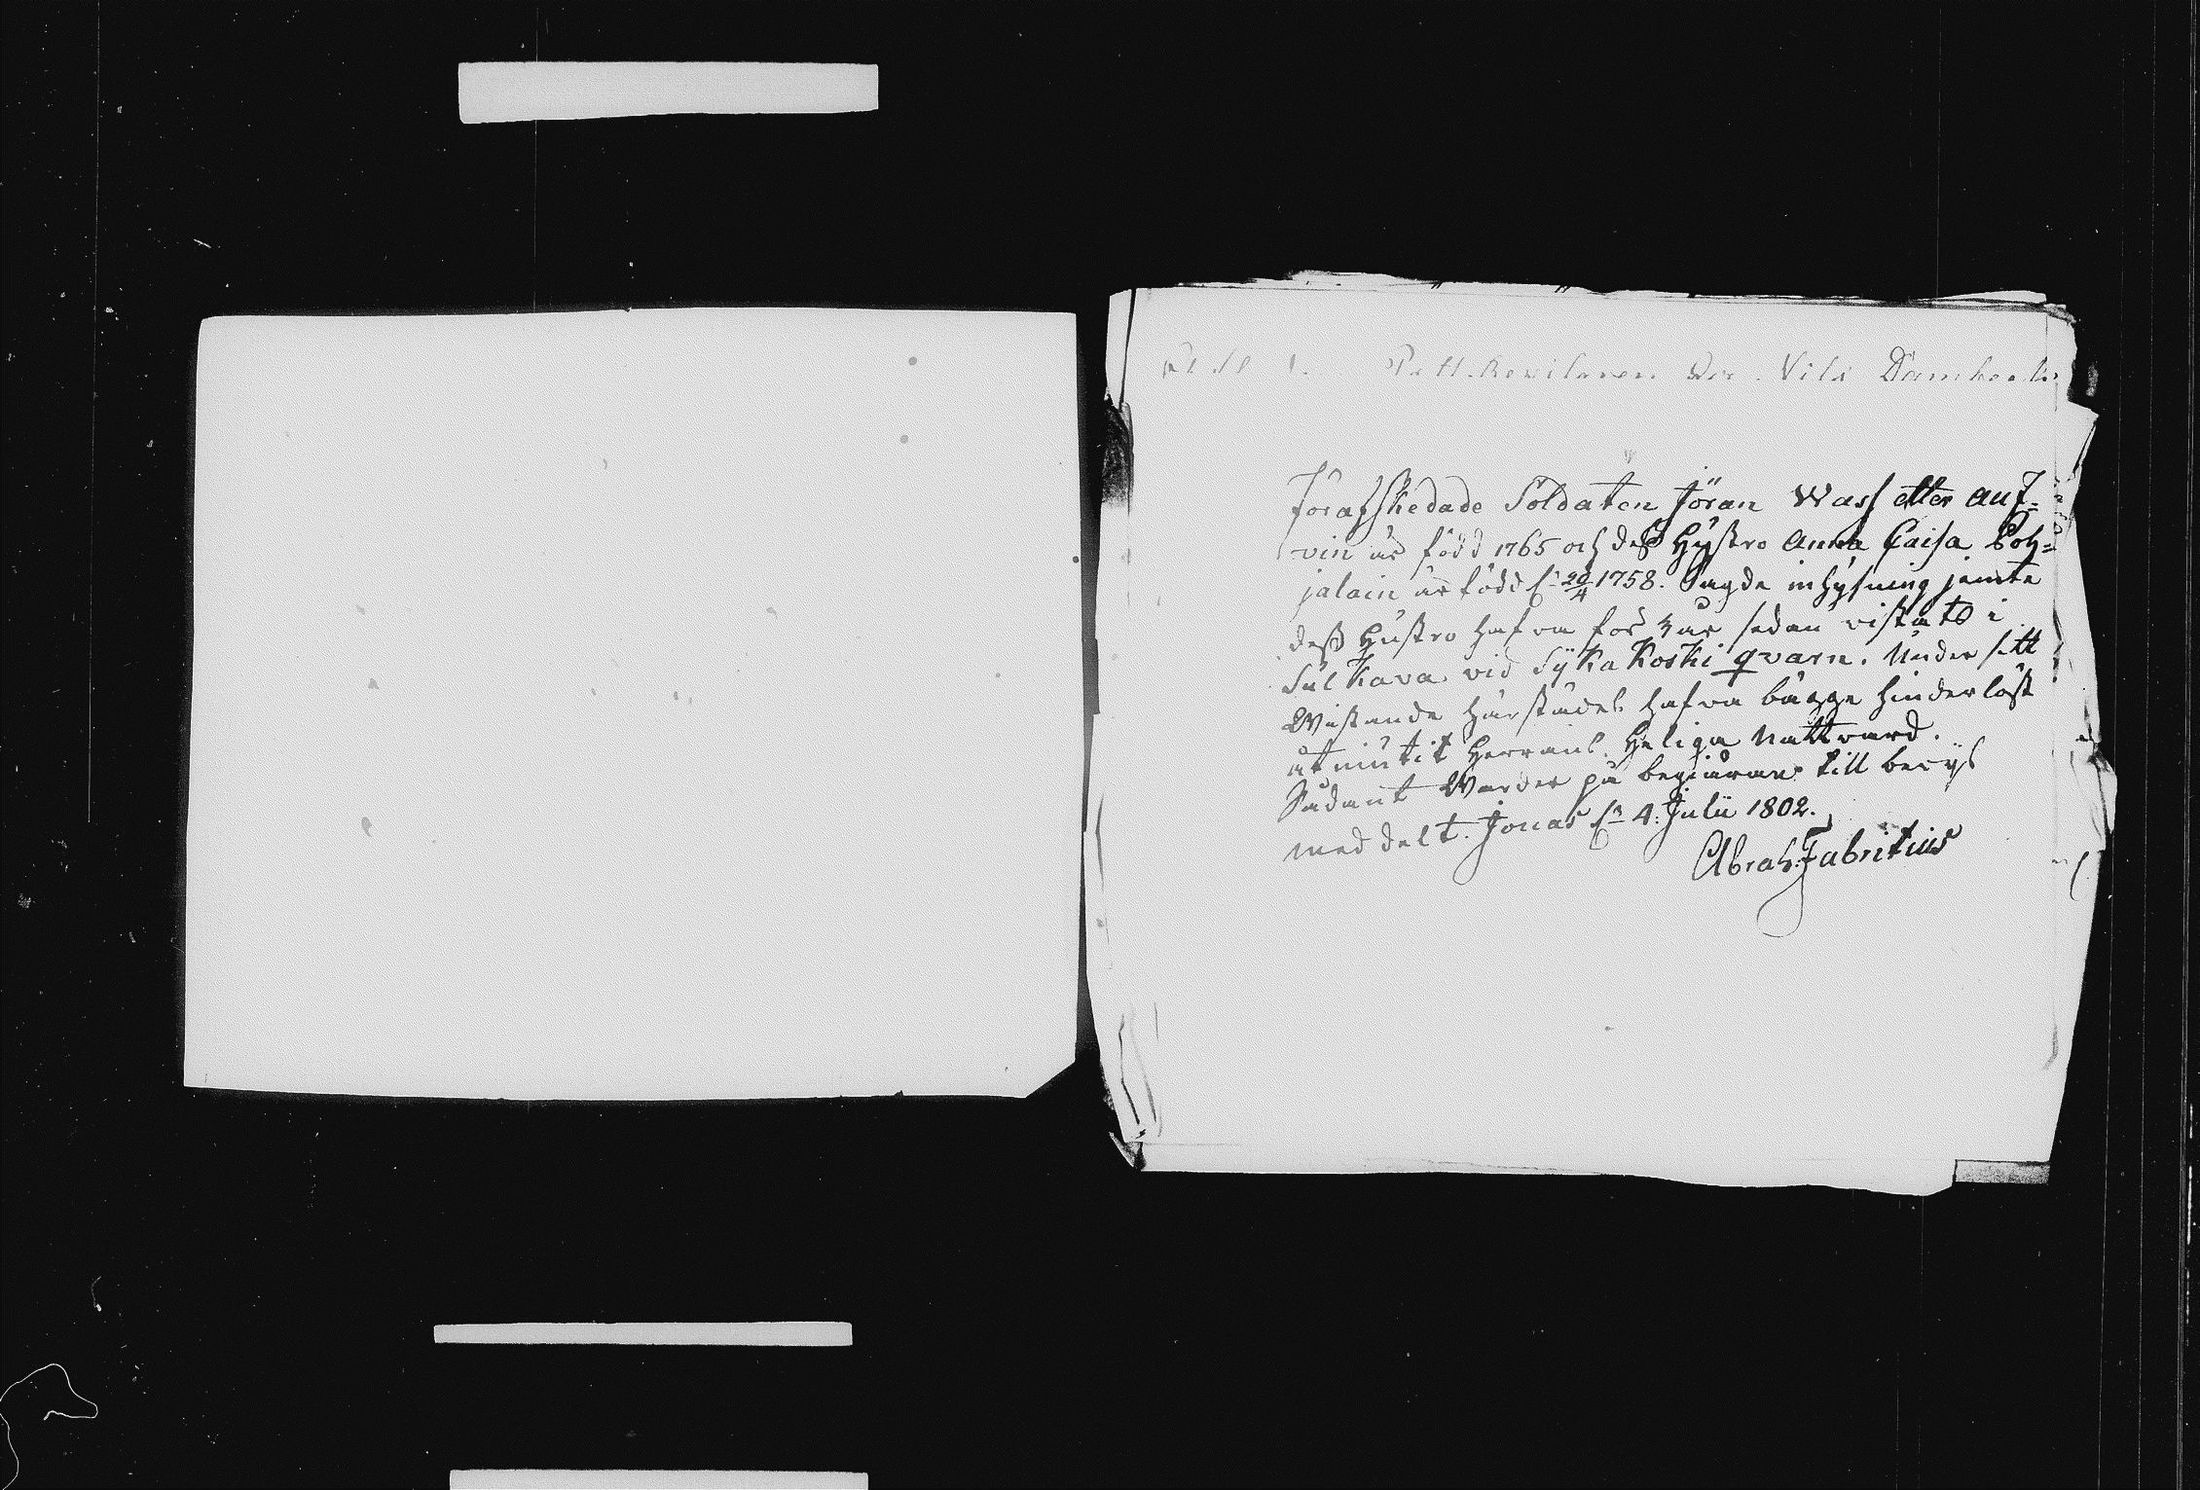 Nils Dämbeck
Förafskedade Soldaten Jöran Wass eller Auf-
vin är född 1765 och deß Hustro Anna Caisa Poh-
jalain är född d. 20/4 1758. Sagde inhysning jemte
deß Hustro hafva för 3 år sedan vistats i
Sulkava vid Sykäkoski qvarn. Under sitt
Wistande härstädes hafva bägge hinderlöst
åtniutit Herrans Heliga Nattvard.
Sådant Warder på begiäran till bevis
meddelt. Jonas d. 4. Julii 1802.
Abrah: Fabritius